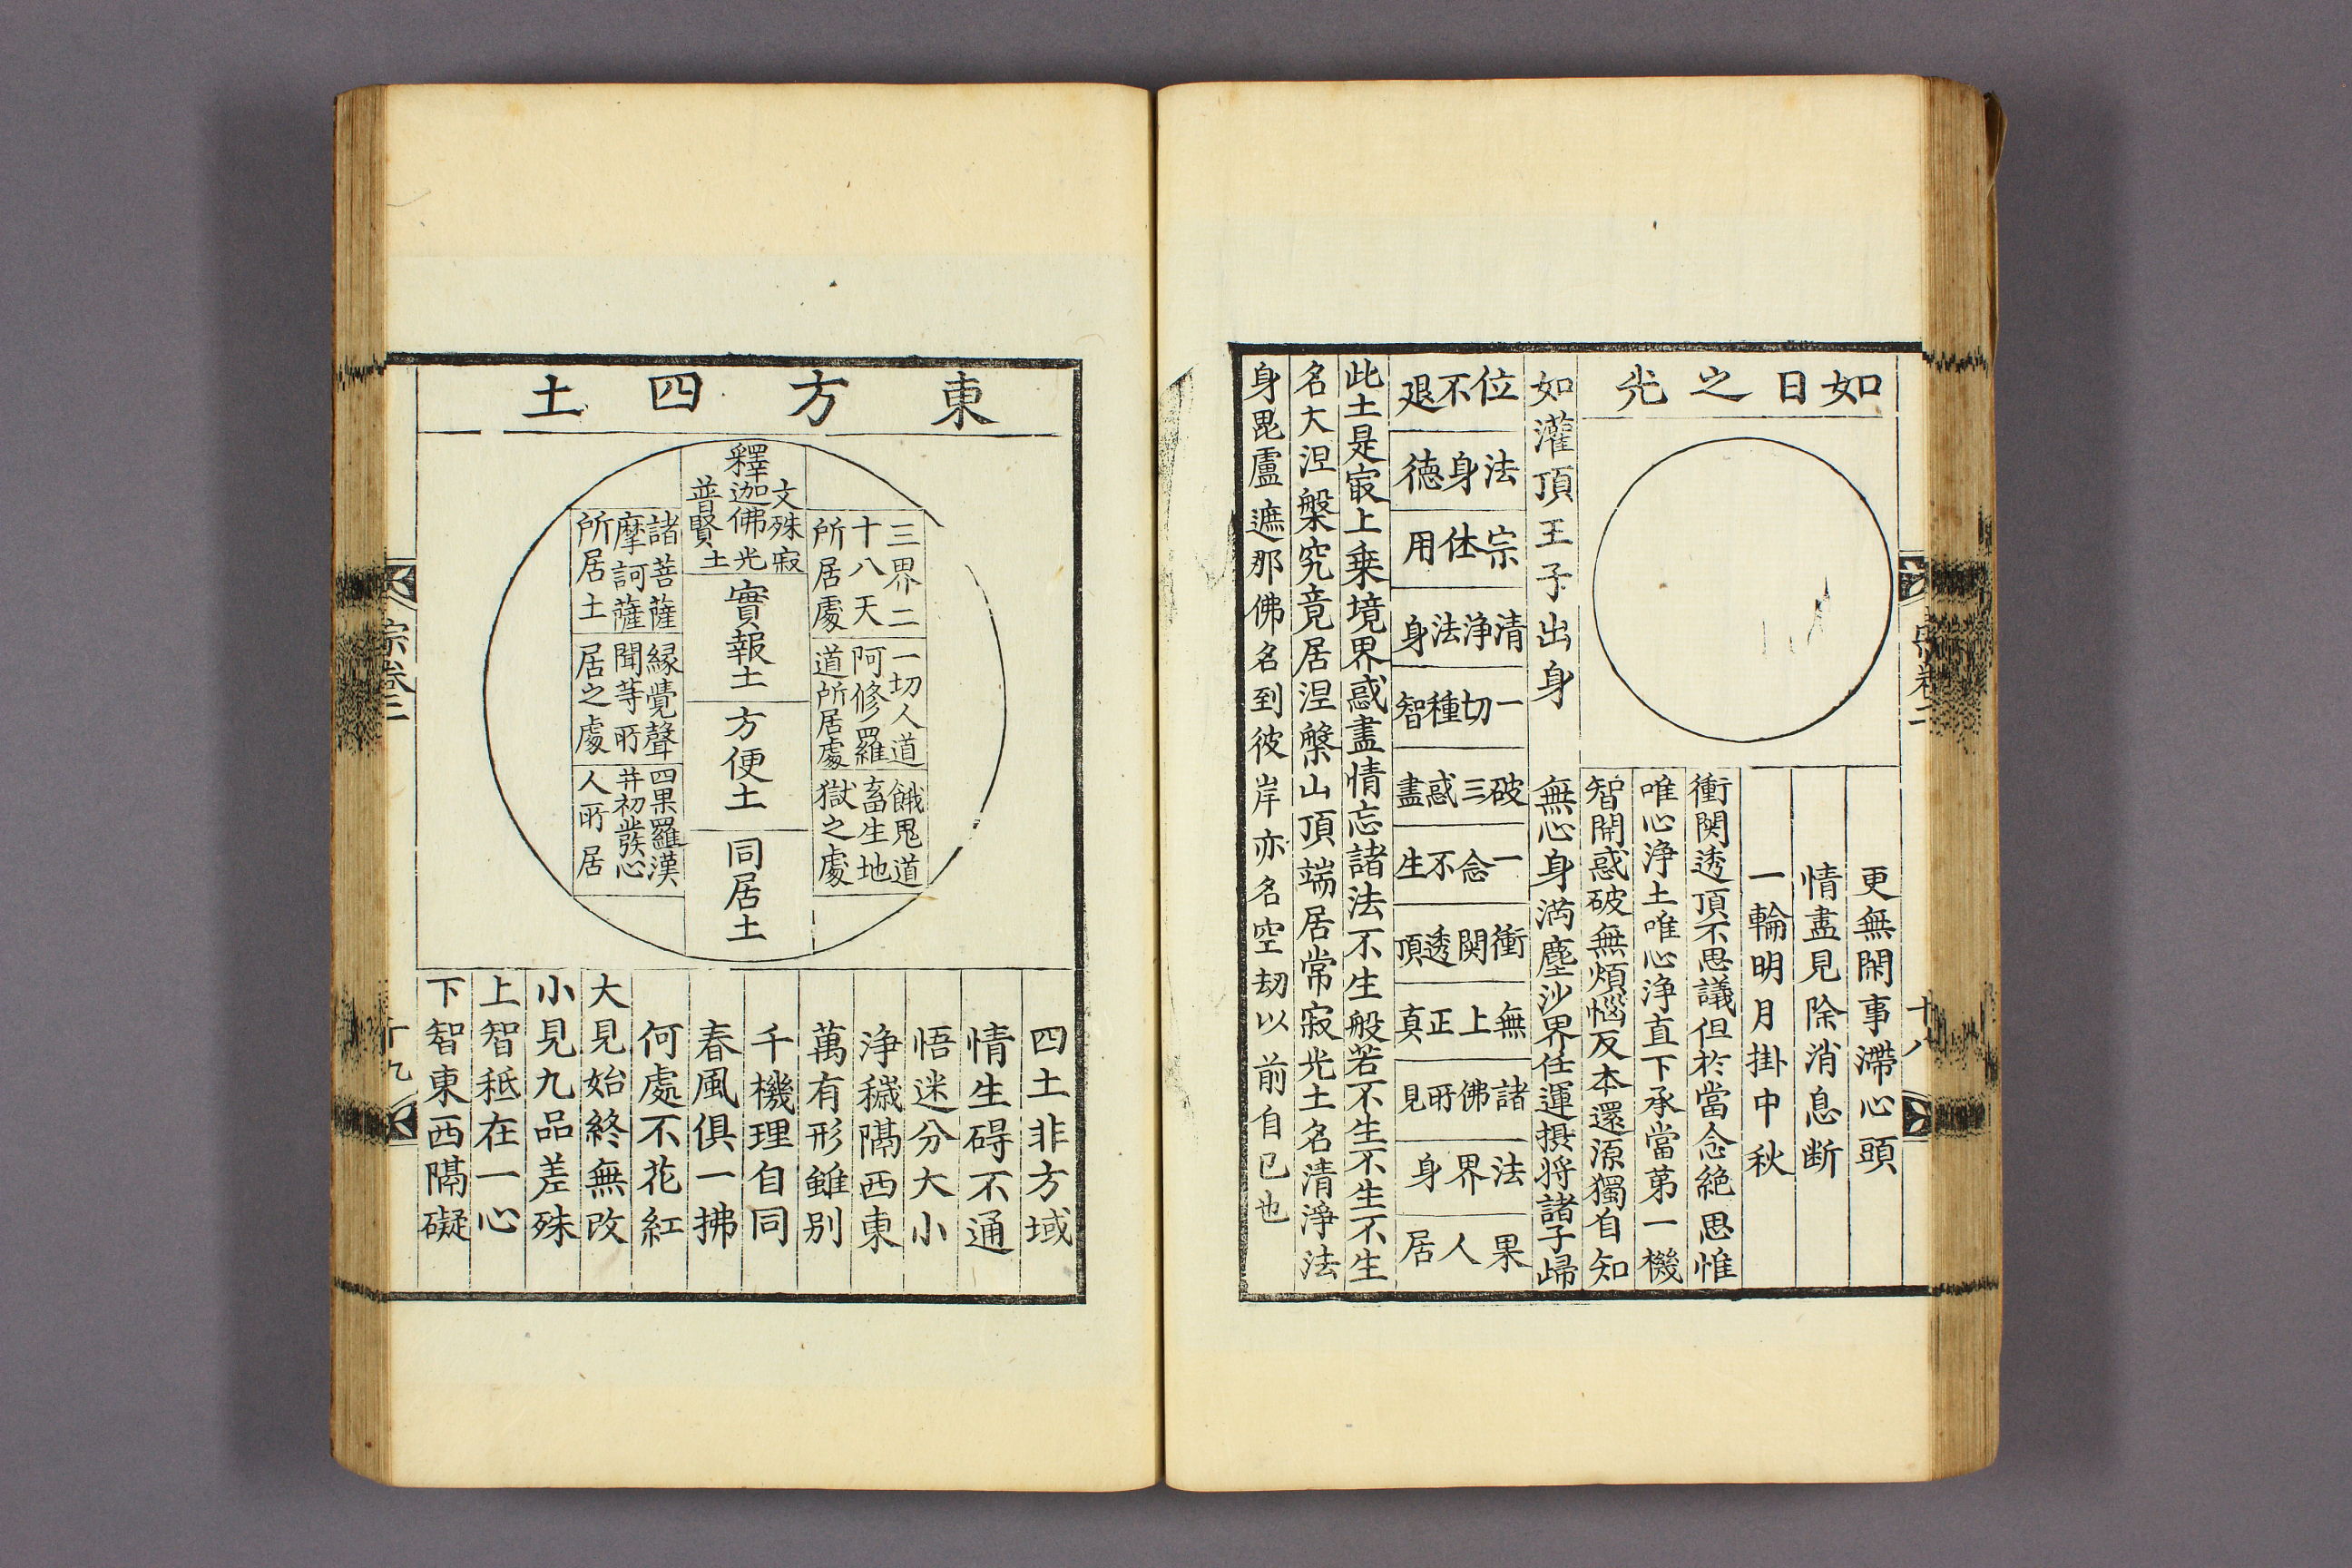 如日之光
更無閑事滯心頭
情盡見除消息断
一輪明月掛中秋
衝関透頂不思議但於當念絶思惟
唯心浄土唯心浄直下承當苐一機
智開惑破無煩惱反本還源獨自知
如灌頂王子出身
無心身満塵沙界任運摂将諸子歸
位不退
法身德
宗体用
清浄法身
一切種智
破三惑盡
一念不生
衝関透頂
無上正真
諸佛所見
法界身
果人居
此土是㝡上乗境界惑盡情忘諸法不生般若不生不生不生
名大涅槃究竟居涅槃山頂端居常寂光土名清淨法
身毘盧遮那佛名到彼岸亦名空劫以前自已也
十八
東方四土
釋迦佛
文殊
普賢
寂光土
實報土
方便土
同居土
三界二
十八天
所居處
一切人道
阿修羅
道所居處
餓鬼道
畜生地
獄之處
諸菩薩
摩訶薩
所居土
縁覺聲
聞等所
居之處
四果羅漢
并初發心
人所居
四土非方域
情生碍不通
悟迷分大小
浄穢隔西東
萬有形雖别
千機理自同
春風俱一拂
何處不花紅
大見始終無改
小見九品差殊
上智秪在一心
下智東西隔礙
宗卷二
十九